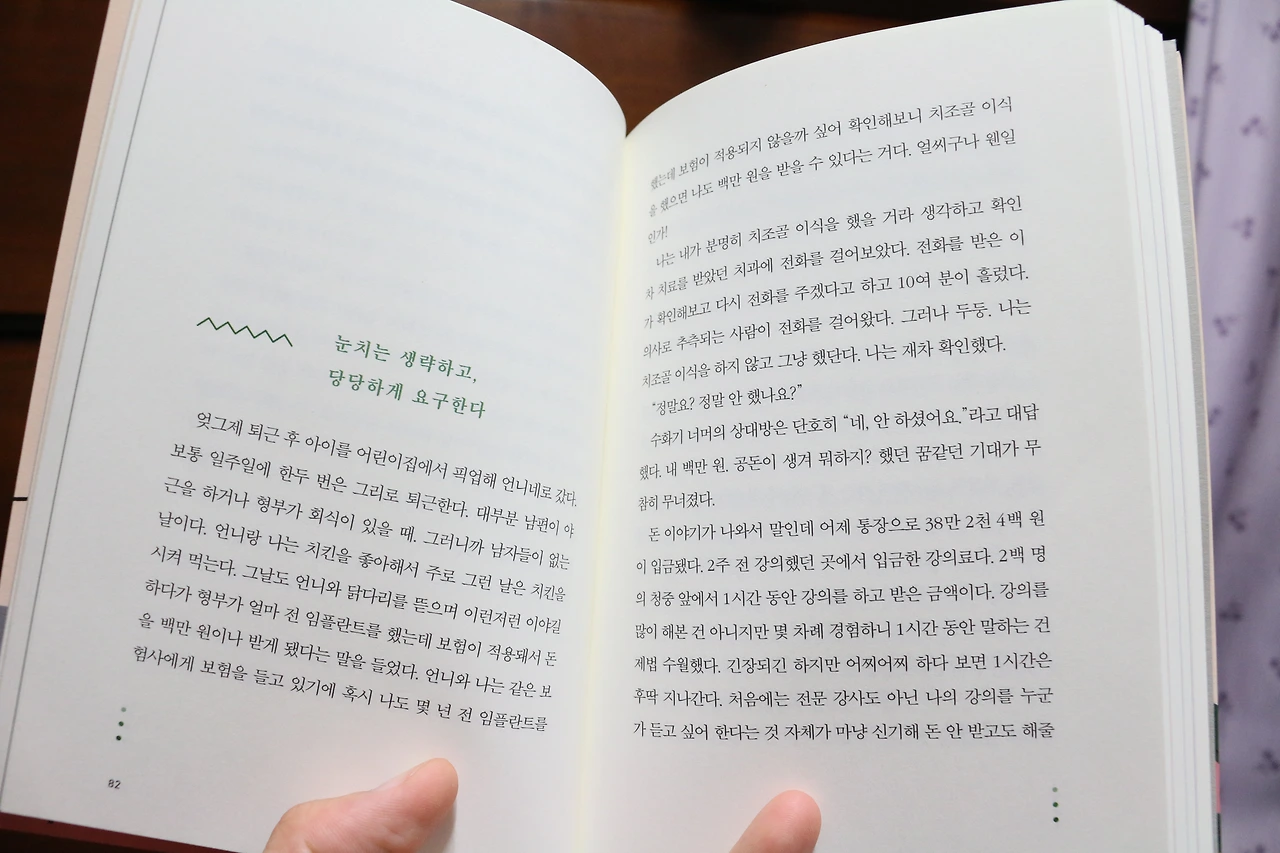 눈치는 생략하고,
당당하게 요구한다
엊그제 퇴근 후 아이를 어린이집에서 픽업해 언니네로 갔다.
보통 일주일에 한두 번은 그리로 퇴근한다. 대부분 남편이 야
근을 하거나 형부가 회식이 있을 때. 그러니까 남자들이 없는
날이다. 언니랑 나는 치킨을 좋아해서 주로 그런 날은 치킨을
시켜 먹는다. 그날도 언니와 닭다리를 뜯으며 이런저런 이야길
하다가 형부가 얼마 전 임플란트를 했는데 보험이 적용돼서 돈
을 백만 원이나 받게 됐다는 말을 들었다. 언니와 나는 같은 보
험사에게 보험을 들고 있기에 혹시 나도 몇 년 전 임플란트를
82
했는데 보험이 적용되지 않을까 싶어 확인해보니 치조골 이식
을 했으면 나도 백만 원을 받을 수 있다는 거다. 얼씨구나 웬일
인가!
나는 내가 분명히 치조골 이식을 했을 거라 생각하고 확인
차 치료를 받았던 치과에 전화를 걸어보았다. 전화를 받은 이
가 확인해보고 다시 전화를 주겠다고 하고 10여 분이 흘렀다.
의사로 추측되는 사람이 전화를 걸어왔다. 그러나 두둥. 나는
치조골 이식을 하지 않고 그냥 했단다. 나는 재차 확인했다.
“정말요? 정말 안 했나요?”
수화기 너머의 상대방은 단호히 “네, 안 하셨어요.”라고 대답
했다. 내 백만 원. 공돈이 생겨 뭐하지? 했던 꿈같던 기대가 무
참히 무너졌다.
돈 이야기가 나와서 말인데 어제 통장으로 38만 2천 4백 원
이 입금됐다. 2주 전 강의했던 곳에서 입금한 강의료다. 2백 명
의 청중 앞에서 1시간 동안 강의를 하고 받은 금액이다. 강의를
많이 해본 건 아니지만 몇 차례 경험하니 1시간 동안 말하는 건
제법 수월했다. 긴장되긴 하지만 어찌어찌 하다 보면 1시간은
후딱 지나간다. 처음에는 전문 강사도 아닌 나의 강의를 누군
가 듣고 싶어 한다는 것 자체가 마냥 신기해 돈 안 받고도 해줄